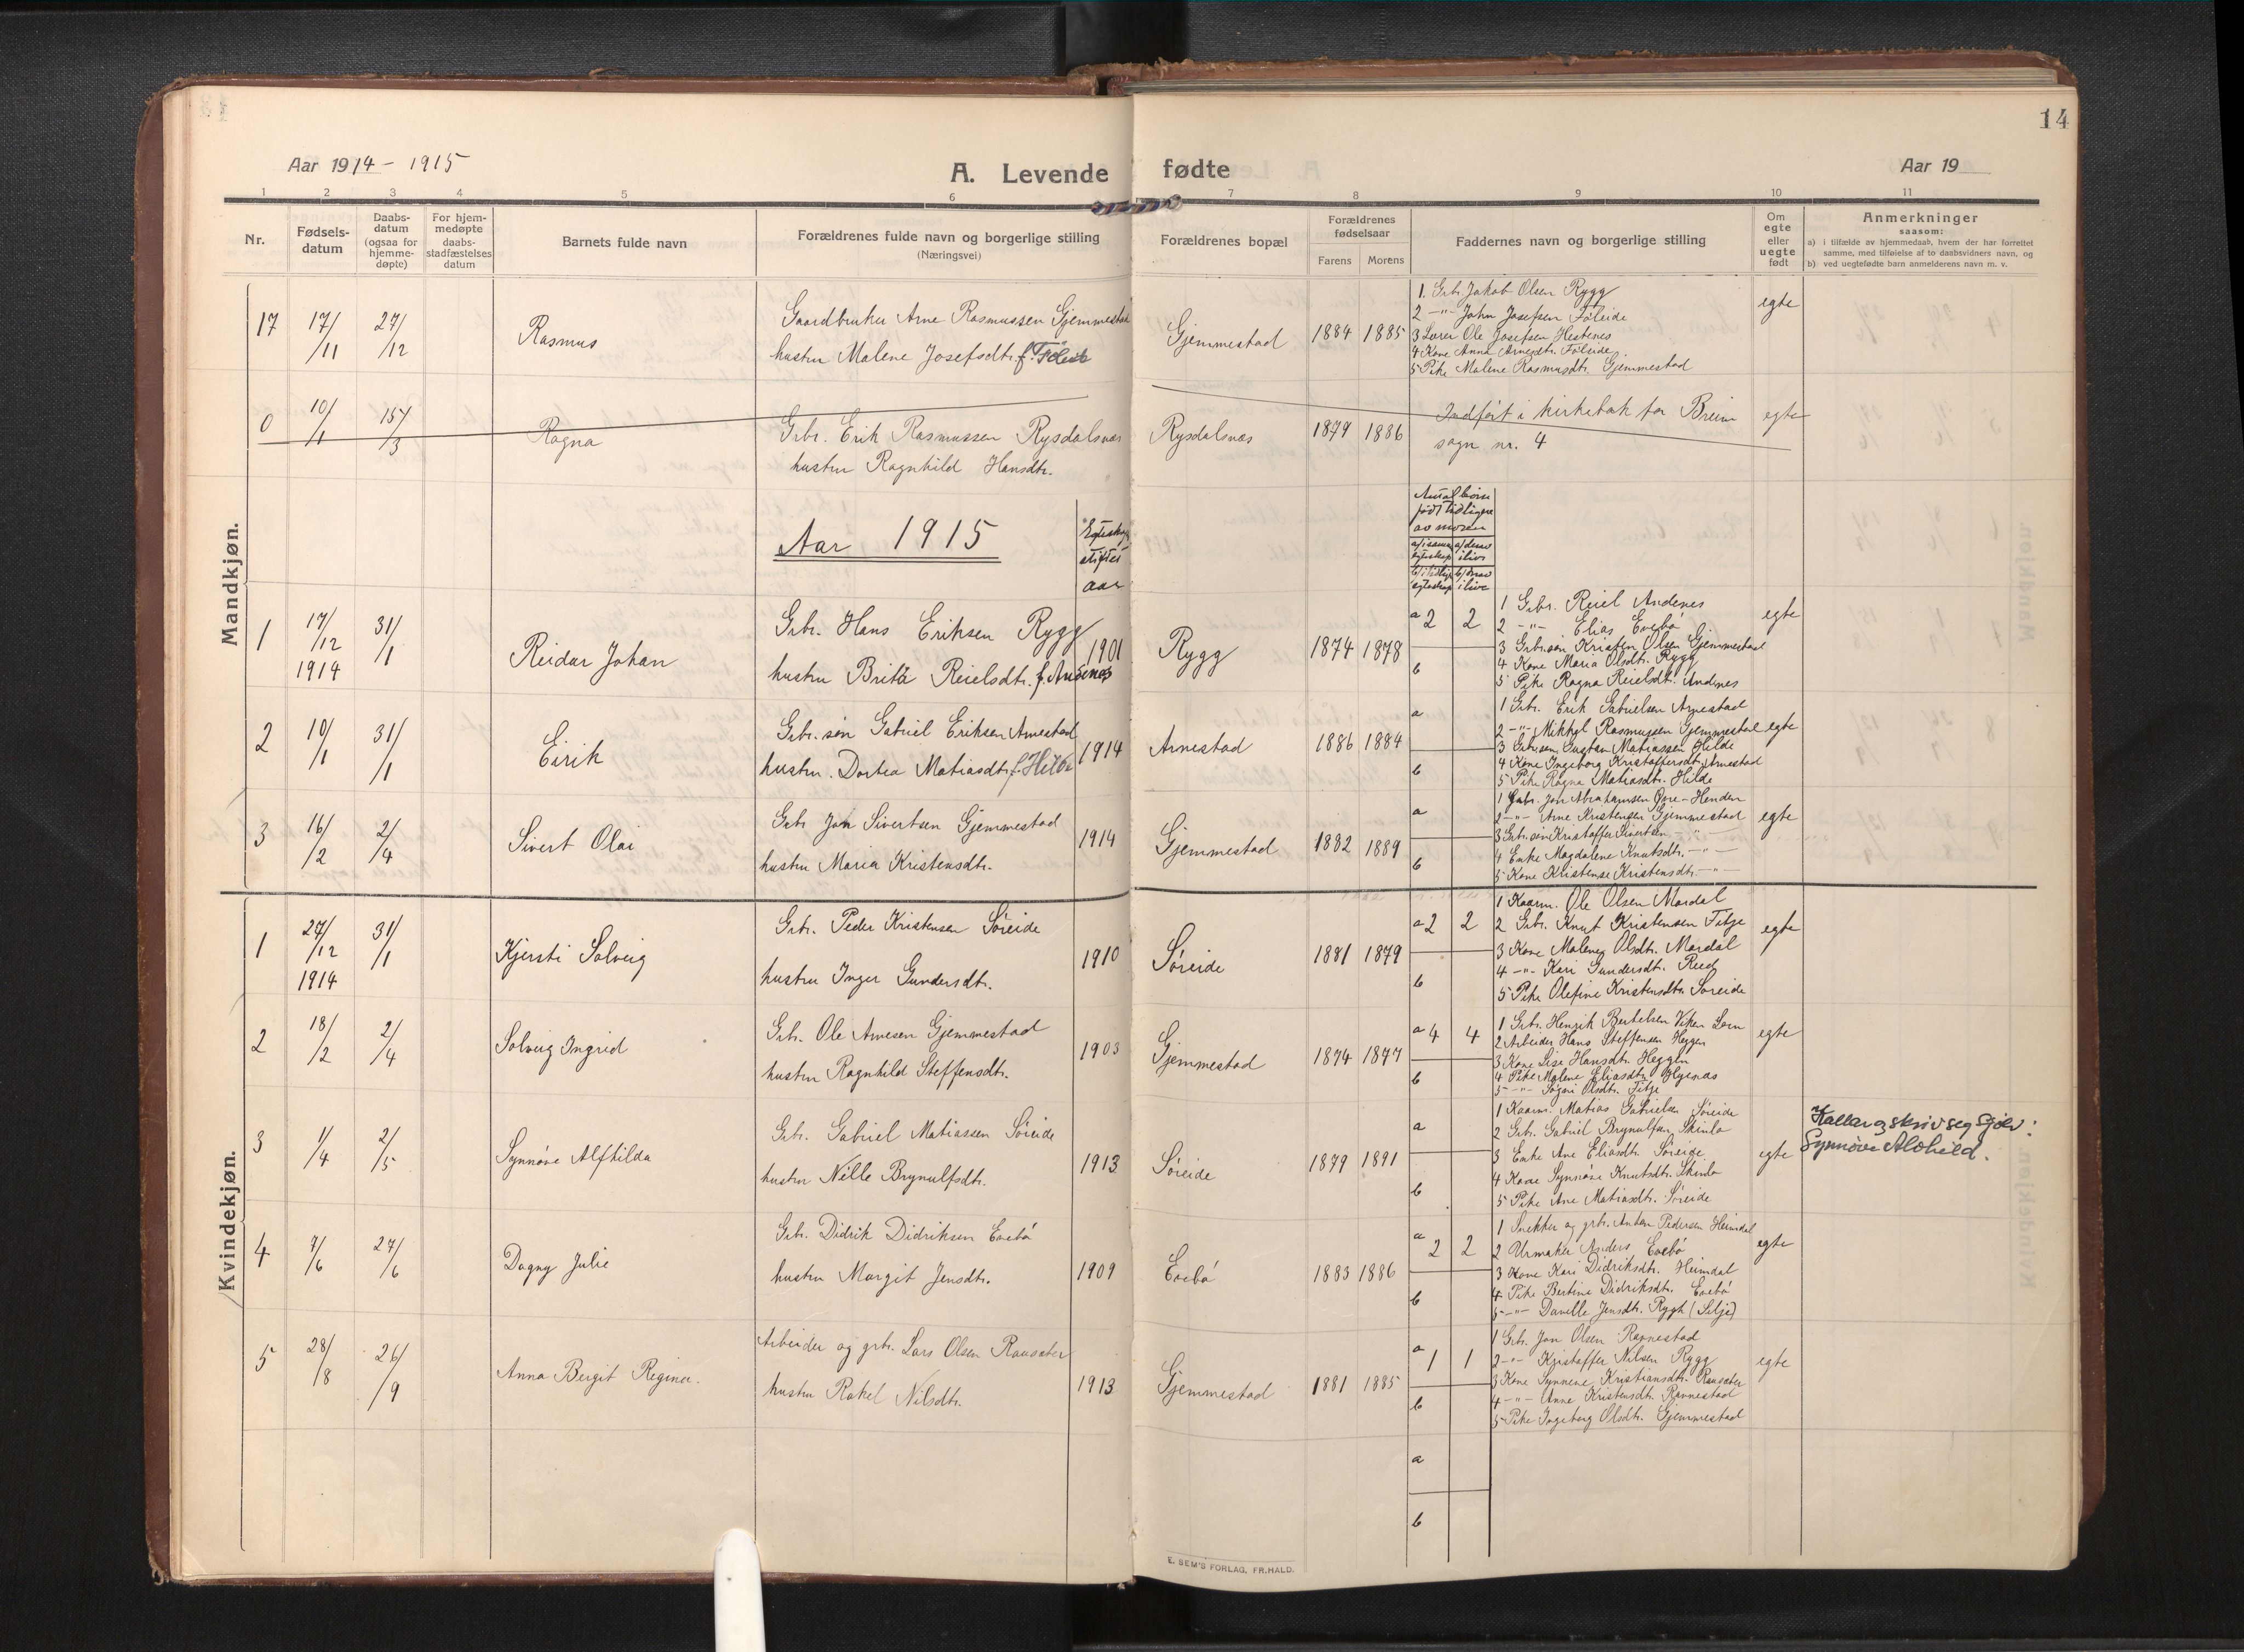 14
Aar 1914 - 1915
A. Levende fødte
Aar 19
1 2 3 4 5 6 7 8 9 10 11
Nr.
Fødsels-
datum
Daabs-
datum
(ogsaa for
hjemme-
døpte)
For hjem-
medøpte
daabs-
stadfæstelses
datum
Barnets fulde navn
Forældrenes fulde navn og borgerlige stilling
(Næringsvei)
Forældrenes bopæl
Forældrenes
fødselsaar
Farens Morens
Faddernes navn og borgerlige stilling
Om
egte
eller
uegte
født
Anmerkninger
saasom:
a) i tilfælde av hjemmedaab, hvem der har forrettet
samme, med tilføielse af to daabsvidners navn, og
b) ved uegtefødte barn anmelderens navn m. v.
Mandkjøn.
17 17/11 27/12 Rasmus
Gaardbruker Arne Rasmussen Gjemmestad
hustru Malene Josefsdtr. f. Føleide
Gjemmestad 1884 1885
1. Grbr. Jakob Olsen Rygg
2 -"- John Josefsen Føleide
3 Lærer Ole Josefsen Hestenes
4 Kone Anna Arnesdtr. Føleide
5 Pike Malene Rasmusdtr. Gjemmestad
egte
0 10/1 15/3 Ragna
Grbr. Erik Rasmussen Rysdalsnes
hustru Ragnhild Hansdtr.
Rysdalsnes 1879 1886
Indført i kirkebok for Breim
sogn nr. 4
egte
Aar 1915
Egteskap
stiftet
aar
Antal børn
født tidligere
av moren
a/ i samme egteskap a/ derav i live
b/ i tidlige egteskap b/ derav i live
1 17/12 1914 31/1 Reidar Johan
Grbr. Hans Eriksen Rygg
hustru Brita Reielsdtr. f. Andenes
1901
Rygg 1874 1878
a 2 2
b
1 Grbr. Reiel Andenes
2 -"- Elias Evebø
3 Grbr.søn Kristen Olsen Gjemmestad
4 Kone Maria Olsdtr. Rygg
5 Pike Ragna Reielsdtr. Andenes
egte
2 10/1 31/1 Eirik
Grbr.søn Gabriel Eriksen Arnestad
hustru. Dortea Matiasdtr. f. Hilde
1914
Arnestad 1886 1884
a
b
1 Grbr. Erik Gabrielsen Arnestad
2 -"- Mikkel Rasmussen Gjemmestad
3 Grbr.søn Gustav Matiassen Hilde
4 Kone Ingeborg Kristoffersdtr. Arnestad
5 Pike Ragna Matiasdtr. Hilde
egte
3 16/2 2/4 Sivert Olai
Grbr Jon Sivertsen Gjemmestad
hustru Maria Kristensdtr.
1914
Gjemmestad 1882 1889
a
b
1 Grbr. Jon Abrahamsen Øvre-Henden
2 -"- Arne Kristensen Gjemmestad
3 Grbr.søn Kristoffer Sivertsen -"-
4 Enke Magdalene Knutsdtr. -"-
5 Kone Kristense Kristensdtr. -"-
egte
Kvindekjøn.
1 27/12 1914 31/1 Kjersti Solveig
Grbr. Peder Kristensen Søreide
hustru Inger Gundersdtr.
1910
Søreide 1881 1879
a 2 2
b
1 Kaarm. Ole Olsen Mardal
2 Grbr. Knut Kristensen Fitje
3 Kone Malene Olsdtr. Mardal
4 -"- Kari Gundersdtr. Reed
5 Pike Olefine Kristensdtr. Søreide
egte
2 18/2 2/4 Solveig Ingrid
Grbr. Ole Arnesen Gjemmestad
hustru Ragnhild Steffensdtr.
1903
Gjemmestad 1874 1877
a 4 4
b
1 Grbr. Henrik Bertelsen Viken
2 Arbeider Hans Steffensen Heggen
3 Kone Lise Hansdtr. Heggen
4 Pike Malene Eliasdtr. Hyenæs
5 -"- Olsdtr. Fitje
egte
3 1/4 2/5 Synnøve Alfhilda
Grbr. Gabriel Matiassen Søreide
hustru Nille Brynulfsdtr.
1913
Søreide 1879 1891
a
b
1 Kaarm. Matias Gabrielsen Søreide
2 Grbr. Gabriel Brynulfsen Skinlo
3 Enke Ane Eliasdtr. Søreide
4 Kone Synnøve Knutsdtr. Skinlo
5 Pike Ane Matiasdtr. Søreide
egte
Kallar og skriv seg sjølv:
Synnøve Alvhild.
4 7/6 27/6 Dagny Julie
Grbr. Didrik Didriksen Evebø
hustru Margit Jensdtr.
1909
Evebø 1883 1886
a 2 2
b
1 Snekker og grbr. Anton Pedersen Heimdal
2 Urmaker Anders Evebø
3 Kone Kari Didriksdtr. Heimdal
4 Pike Bertine Didriksdtr. Evebø
5 -"- Danelle Jensdtr. Rygh (Silje)
egte
5 28/8 26/9 Anna Bergit Regina.
Arbeider og grbr. Lars Olsen Rausæter
hustru Rakel Nilsdtr.
1913
Gjemmestad 1881 1885
a 1 1
b
1 Grbr. Jon Olsen Ravnestad
2 -"- Kristoffer Nilsen Rygg
3 Kone Synnøve Kristiansdtr. Rausæter
4 -"- Anne Kristensdtr. Ravnestad
5 Pike Ingeborg Olsdtr. Gjemmestad
egte
a
b
E. SEM'S FORLAG, FR.HALD.